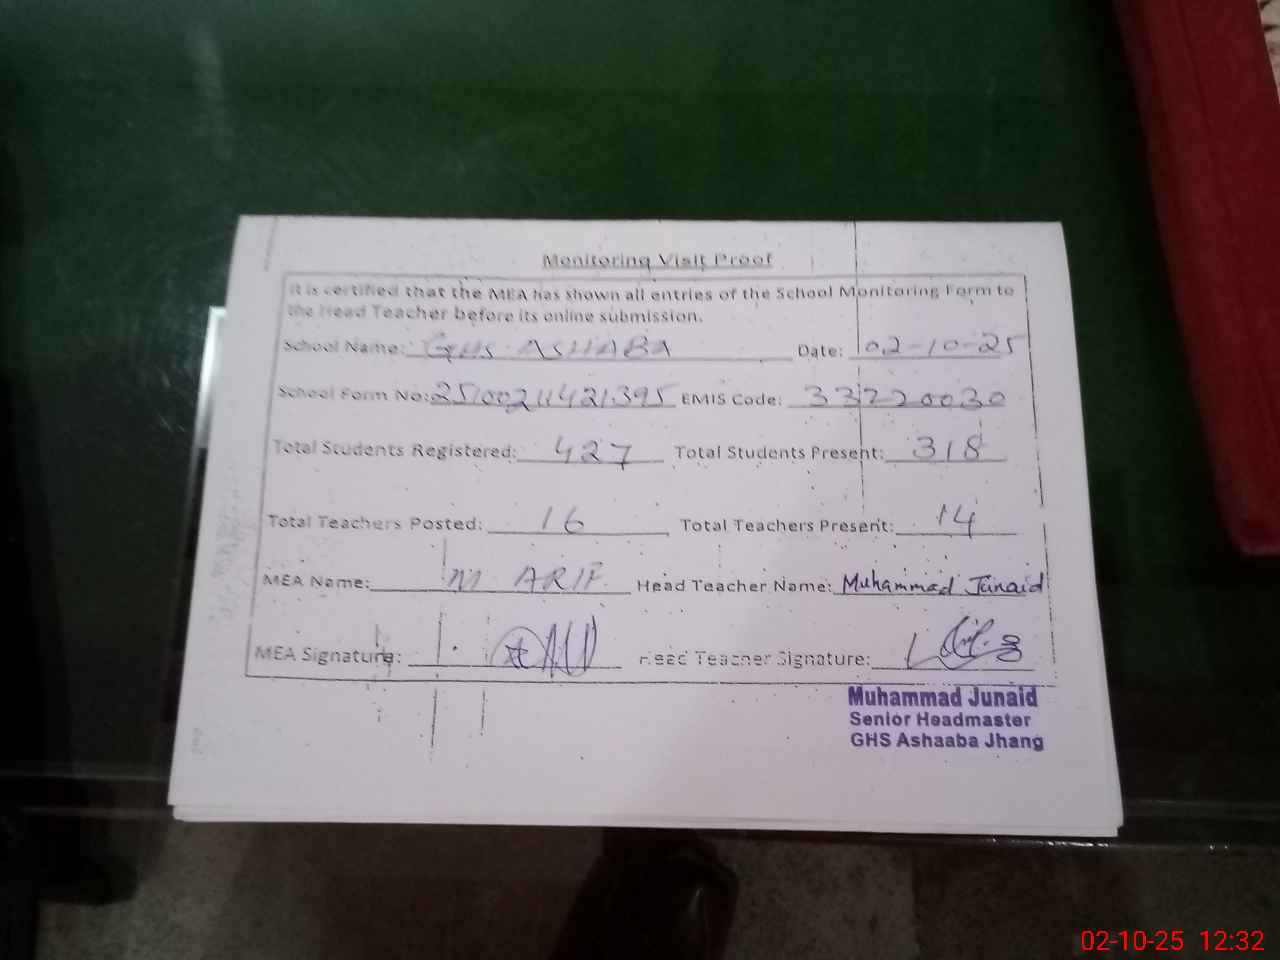 Monitoring Visit Proof
It is certified that the MEA has shown all entries of the School Monitoring Form to
the Head Teacher before its online submission.
School Name: GHS ASHABA Date: 02-10-25
School Form No: 2510021421395 EMIS Code: 33220030
Total Students Registered: 427 Total Students Present: 318
Total Teachers Posted: 16 Total Teachers Present: 14
MEA Name: M. ARIF Head Teacher Name: Muhammad Junaid
MEA Signature: Head Teacher Signature:
Muhammad Junaid
Senior Headmaster
GHS Ashaaba Jhang
02-10-25 12:32